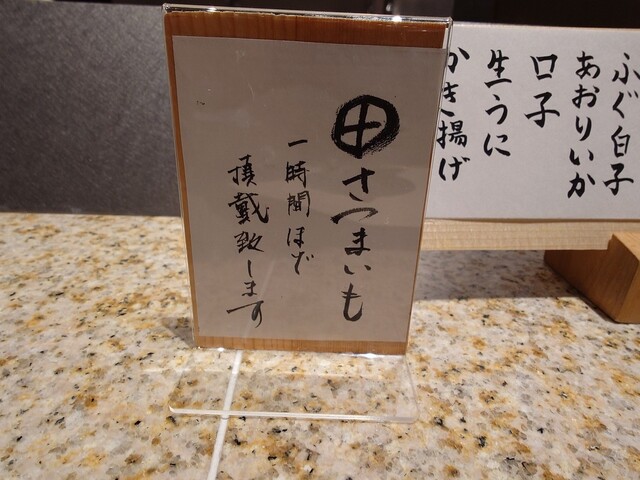 ㊉さつまいも
一時間ほど
頂戴致します
ふぐ白子
あおりいか
口子
生うに
かき揚げ